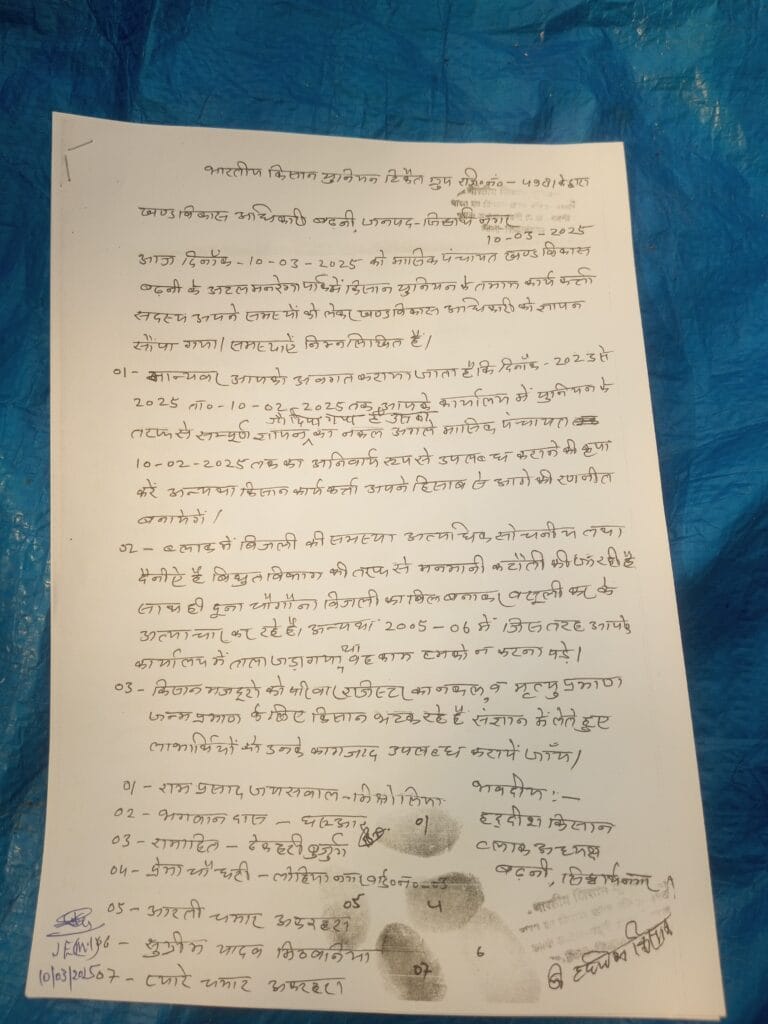 भारतीय किसान यूनियन टिकैत ग्रुप रजि०नं०- 4981 के द्वारा
खण्ड विकास अधिकारी बढ़नी, जनपद-सिद्धार्थ नगर
10-03-2025
आज दिनाँक-10-03-2025 को मासिक पंचायत खण्ड विकास
बढ़नी के अटल मनरेगा पार्क में किसान यूनियन के तमाम कार्य कर्त्ता
सदस्य अपने समस्यों को लेकर खण्ड विकास अधिकारी को ज्ञापन
सौंपा गया। समस्याऐं निम्नलिखित हैं।
01- मान्यवर आपको अवगत कराया जाता है कि दिनाँक-2023 से
2025 ता० 10-02-2025 तक आपके कार्यालय में यूनियन के
जो दिया गया है उसका
तरफ से सम्पूर्ण ज्ञापन का नकल अगले मासिक पंचायत
10-02-2025 तक का अनिवार्य रूप से उपलब्ध कराने की कृपा
करें अन्यथा किसान कार्यकर्त्ता अपने हिसाब से आगे की रणनीत
बनायेगें।
02- ब्लाक में बिजली की समस्या अत्याधिक सोचनीय तथा
दैनीऐ है विद्युत विभाग की तरफ से मनमानी कटौती की जा रही है
साथ ही दूना चौगौना बिजली का बिल बनाकर वसूली कर के
अत्याचार कर रहे है। अन्यथा 2005-06 में जिस तरह आपके
कार्यालय में ताला जड़ा गया था वह काम हमको न करना पड़े।
03- किसान मजदूरो को परिवार रजिस्टर का नकल, व मृत्यु प्रमाण
जन्म प्रमाण के लिए किसान भटक रहे है संज्ञान में लेते हुए
लाभार्थियों को उनके कागजाद उपलब्ध करायें जाँय।
01- राम प्रसाद जायसवाल-
भवदीय:-
02- भगवान दास -
01
हरदीश किसान
03- रामाहित - देकहरी बुजुर्ग
ब्लाक अध्यक्ष
04- प्रेमा चौधरी - लोहिया नगर वार्ड०नं०-03
बढ़नी, सिद्धार्थनगर
05- आरती चमार अकरहरा
05
4
06 - सुग्रीम यादव
6
10/03/2025
07 - प्यारे चमार अकरहरा
07